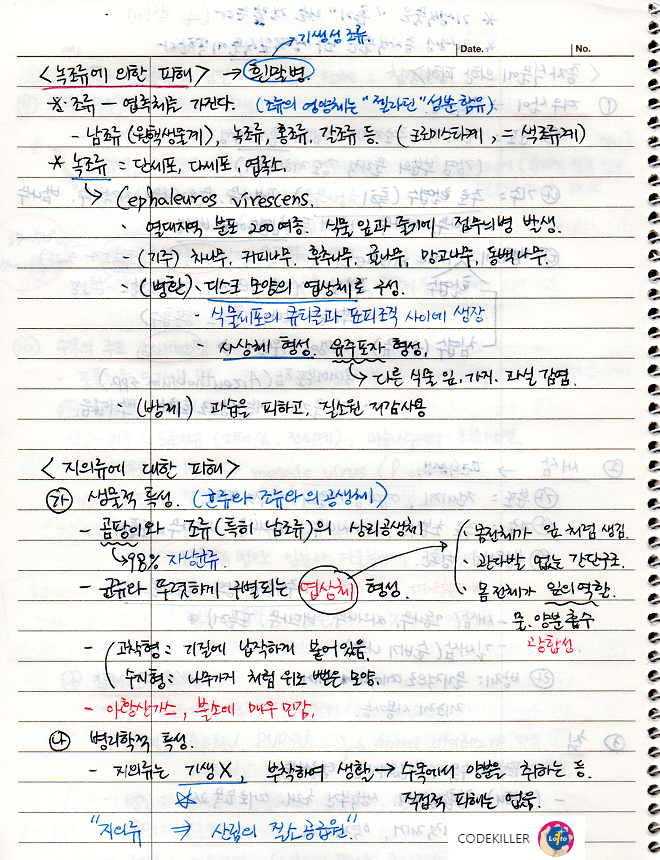 기생성 조류.
Date. No.
<녹조류에 의한 피해> → 흰말병.
※ 조류 - 엽록체를 가진다. (조류의 영양체는 "젤라틴" 성분 함유)
- 남조류 (원핵생물계), 녹조류, 홍조류, 갈조류 등. (크로미스타계, = 색조류계)
* 녹조류 = 단세포, 다세포, 엽록소.
↳ Cephaleuros virescens.
· 열대지역, 분포 200여종. 식물 잎과 줄기에 점무늬병 발생.
- (기주) 차나무, 커피나무, 후추나무, 귤나무, 망고나무, 동백나무.
- (병환). 디스크 모양의 엽상체로 구성.
- 식물세포의 큐티클과 표피조직 사이에 생장
- 사상체 형성. 유주포자 형성,
↳ 다른 식물 잎, 가지, 과실 감염.
- (방제) 과습을 피하고, 질소원 저감사용
<지의류에 대한 피해>
㉮ 생물적 특성. (균류와 조류와의 공생체)
- 곰팡이와 조류(특히 남조류)의 상리공생체
↳ 98% 자낭균류.
- 균류와 뚜렷하게 구별되는 엽상체 형성.
· 몸전체가 잎처럼 생김.
· 관다발 없는 간단구조.
· 몸 전체가 잎의역할.
물, 양분 흡수
광합성
- 고착형 = 기질에 납작하게 붙어있음,
수지형 = 나뭇가지 처럼 위로 뻗은 모양.
- 아황산가스, 불소에 매우 민감,
㉯ 병리학적 특성.
- 지의류는 기생X, 부착하여 생활 → 수목에서 양분을 취하는 등.
직접적 피해는 없음.
"지의류 ⇒ 산림의 질소공급원"
CODEKILLER
Lotto